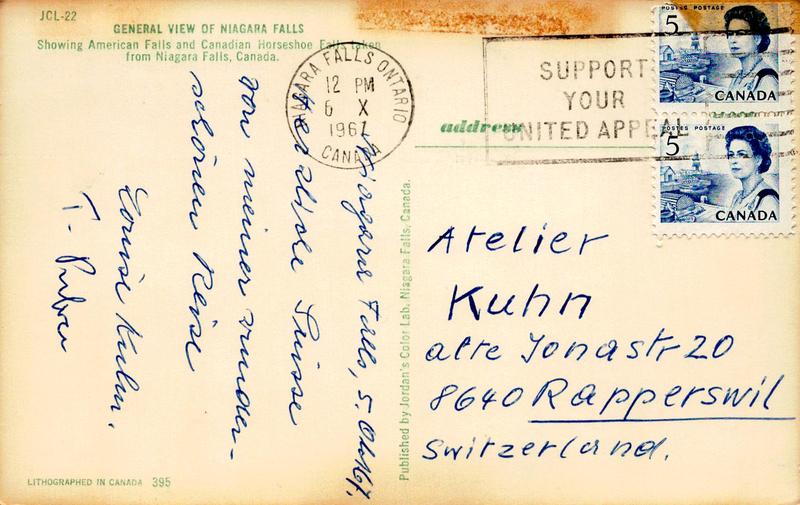 JCL-22
GENERAL VIEW OF NIAGARA FALLS
Showing American Falls and Canadian Horseshoe Falls taken
from Niagara Falls, Canada.
Niagara Falls, 5. Okt. 67.
Herzliche Grüsse
von meiner wunder-
schönen Reise
Louise Kuhn.
T.
LITHOGRAPHED IN CANADA 395
Published by Jordan's Color Lab. Niagara Falls, Canada.
NIAGARA FALLS ONTARIO
12 PM
6 X
1967
CANADA
SUPPORT
YOUR
UNITED APPEAL
address
POSTES POSTAGE
5
CANADA
POSTES POSTAGE
5
CANADA
Atelier
Kuhn
alte Jonastr 20
8640 Rapperswil
Switzerland.